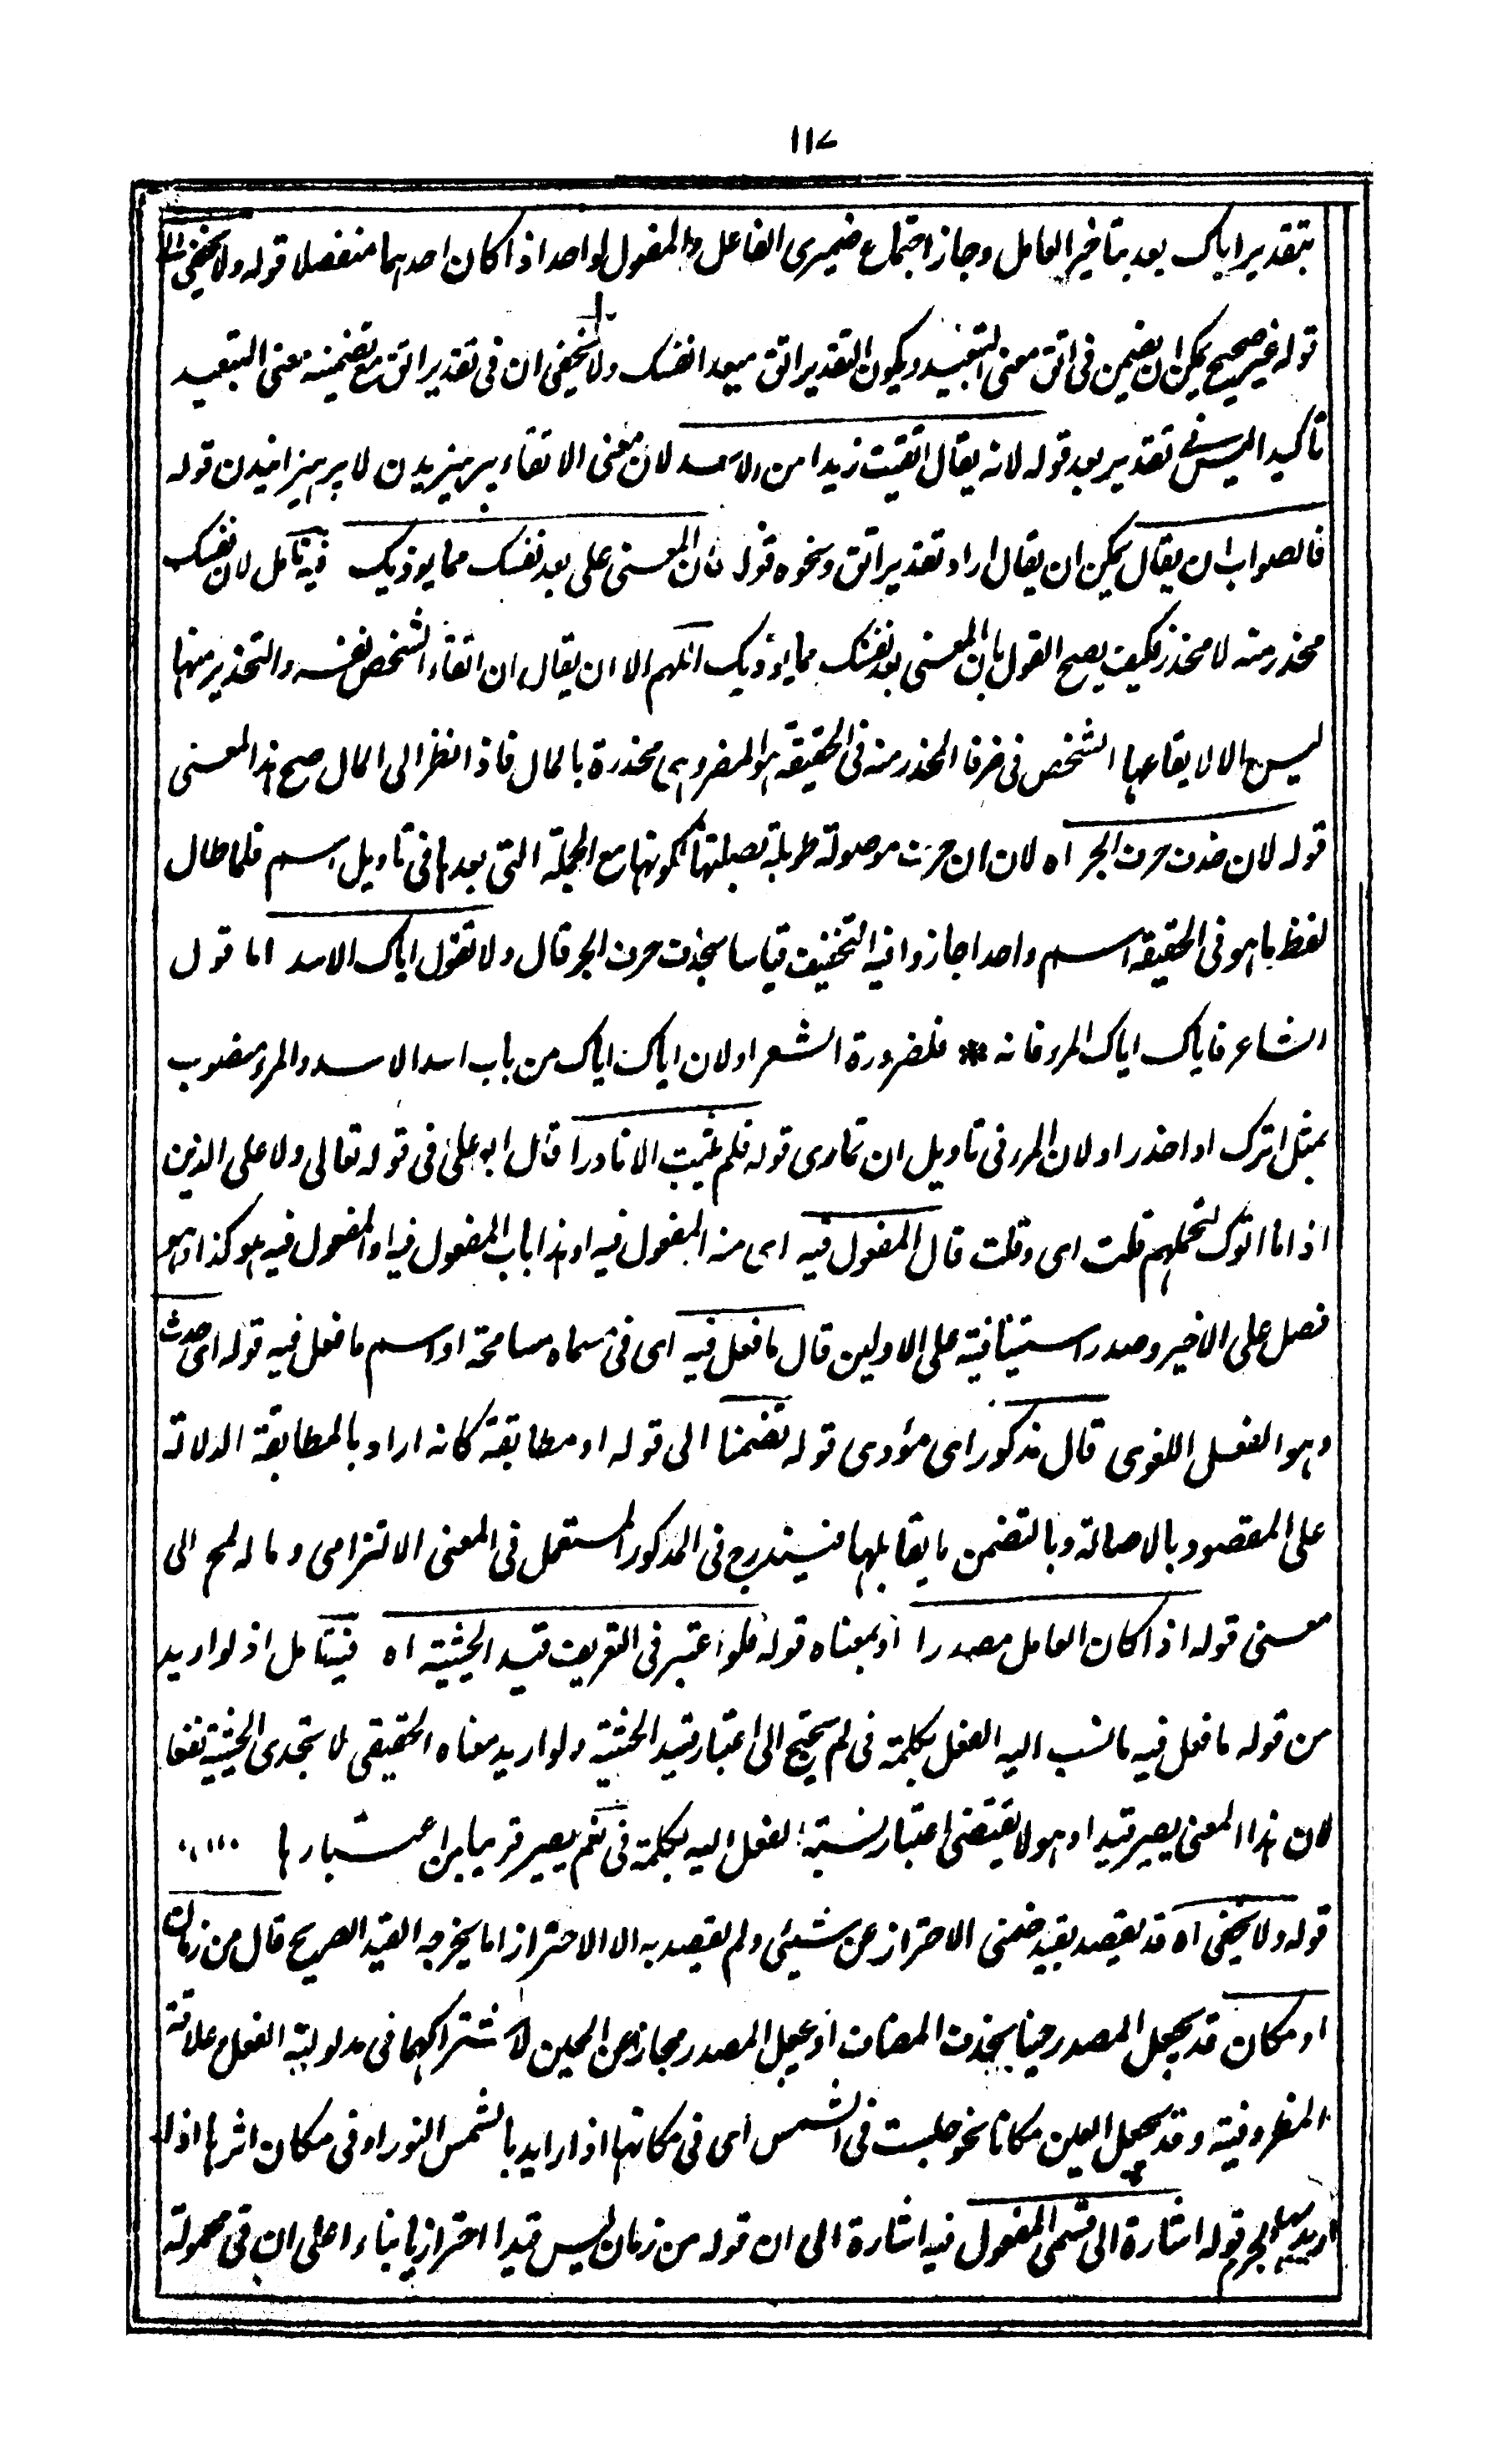 ١١٧
بتقدير اياك بعد بتاخير العامل وجاز اجتماع ضميرى الفاعل والمفعول لواحد اذا كان احدهما منفصلا قوله ولا يخفى
قوله غير صحيح يمكن ان يضمن فى اتق معنى التبعيد ويكون التقدير اتق مبعدا نفسك ولا يخفى ان فى تقدير اتق مع تضمينه معنى التبعيد
تاكيدا ليس فى تقدير بعد قوله لانه يقال اتقيت زيدا من الاسد لان معنى الاتقاء پرهیزیدن لا پرهیزانیدن قوله
فالصواب ان يقال يمكن ان يقال اراد تقدير اتق ونحوه قوله فان المعنى على بعد نفسك مما يوذيك فيه تامل لان نفسك
محذر منه لا محذر فكيف يصح القول بان المعنى بعد نفسك مما يوذيك اللهم الا ان يقال ان اتقاء الشخص نفسه والتحذير منها
ليس الا لايقاعها الشخص فى ضر فالمحذر منه فى الحقيقة هو الضر وهى محذرة بالمال فاذا نظر الى المال صح هذا المعنى
قوله لان حذف حرف الجر اه لان ان حرف موصولة طويلة بصلتها لكونها مع الجملة التى بعدها فى تاويل اسم فلما طال
لفظ ما هو فى الحقيقة اسم واحد اجازوا فيه التخفيف قياسا بحذف حرف الجر قال ولا تقول اياك الاسد اما قول
الشاعر فاياك اياك المراء فانه * فلضرورة الشعر او لان اياك اياك من باب اسد الاسد والمراء منصوب
بمثل اترك او احذر او لان المراء فى تاويل ان تمارى قوله فلم يثبت الا نادرا قال ابو على فى قوله تعالى ولا على الذين
اذا ما اتوك لتحملهم قلت اى وقلت قال المفعول فيه اى منه المفعول فيه او هذا باب المفعول فيه او المفعول فيه هو كذا وهو
فصل على الاخير وصدر استينافية على الاولين قال ما فعل فيه اى فى مسماه مسامحة او اسم ما فعل فيه قوله اى حدث
وهو الفعل اللغوى قال مذكور اى مؤدى قوله تضمنا الى قوله او مطابقة كانه اراد بالمطابقة الدلالة
على المقصود بالاصالة وبالتضمن ما يقابلها فيندرج فى المذكور المستعمل فى المعنى الالتزامى وماله لمح الى
معنى قوله اذا كان العامل مصدرا او بمعناه قوله فلو اعتبر فى التعريف قيد الحيثية اه فيتامل اذ لو اريد
من قوله ما فعل فيه ما نسب اليه الفعل بكلمة فى لم يحتج الى اعتبار قيد الحيثية ولو اريد معناه الحقيقى لا تجدى الحيثية نفعا
لان هذا المعنى يصير قيدا وهو لا يقتضى اعتبار نسبة الفعل اليه بكلمة فى نعم يصير قريبا من اعتبارها
قوله ولا يخفى اه قد يقصد بقيد ضمنى الاحتراز عن شيئى ولم يقصد به الا الاحتراز اما يخرجه القيد الصريح قال من زمان
او مكان قد يجعل المصدر حينا بحذف المضاف او بجعل المصدر مجازا عن الحين لاشتراكهما فى مدلولية الفعل علاقة
المظروفية وقد يجعل العين مكانا نحو جلست فى الشمس اى فى مكانها اذا اريد بالشمس النور او فى مكان اثرها اذا
اريد بها الجرم قوله اشارة الى قسمى المفعول فيه اشارة الى ان قوله من زمان ليس قيدا احترازيا بناء على ان فى محمولة